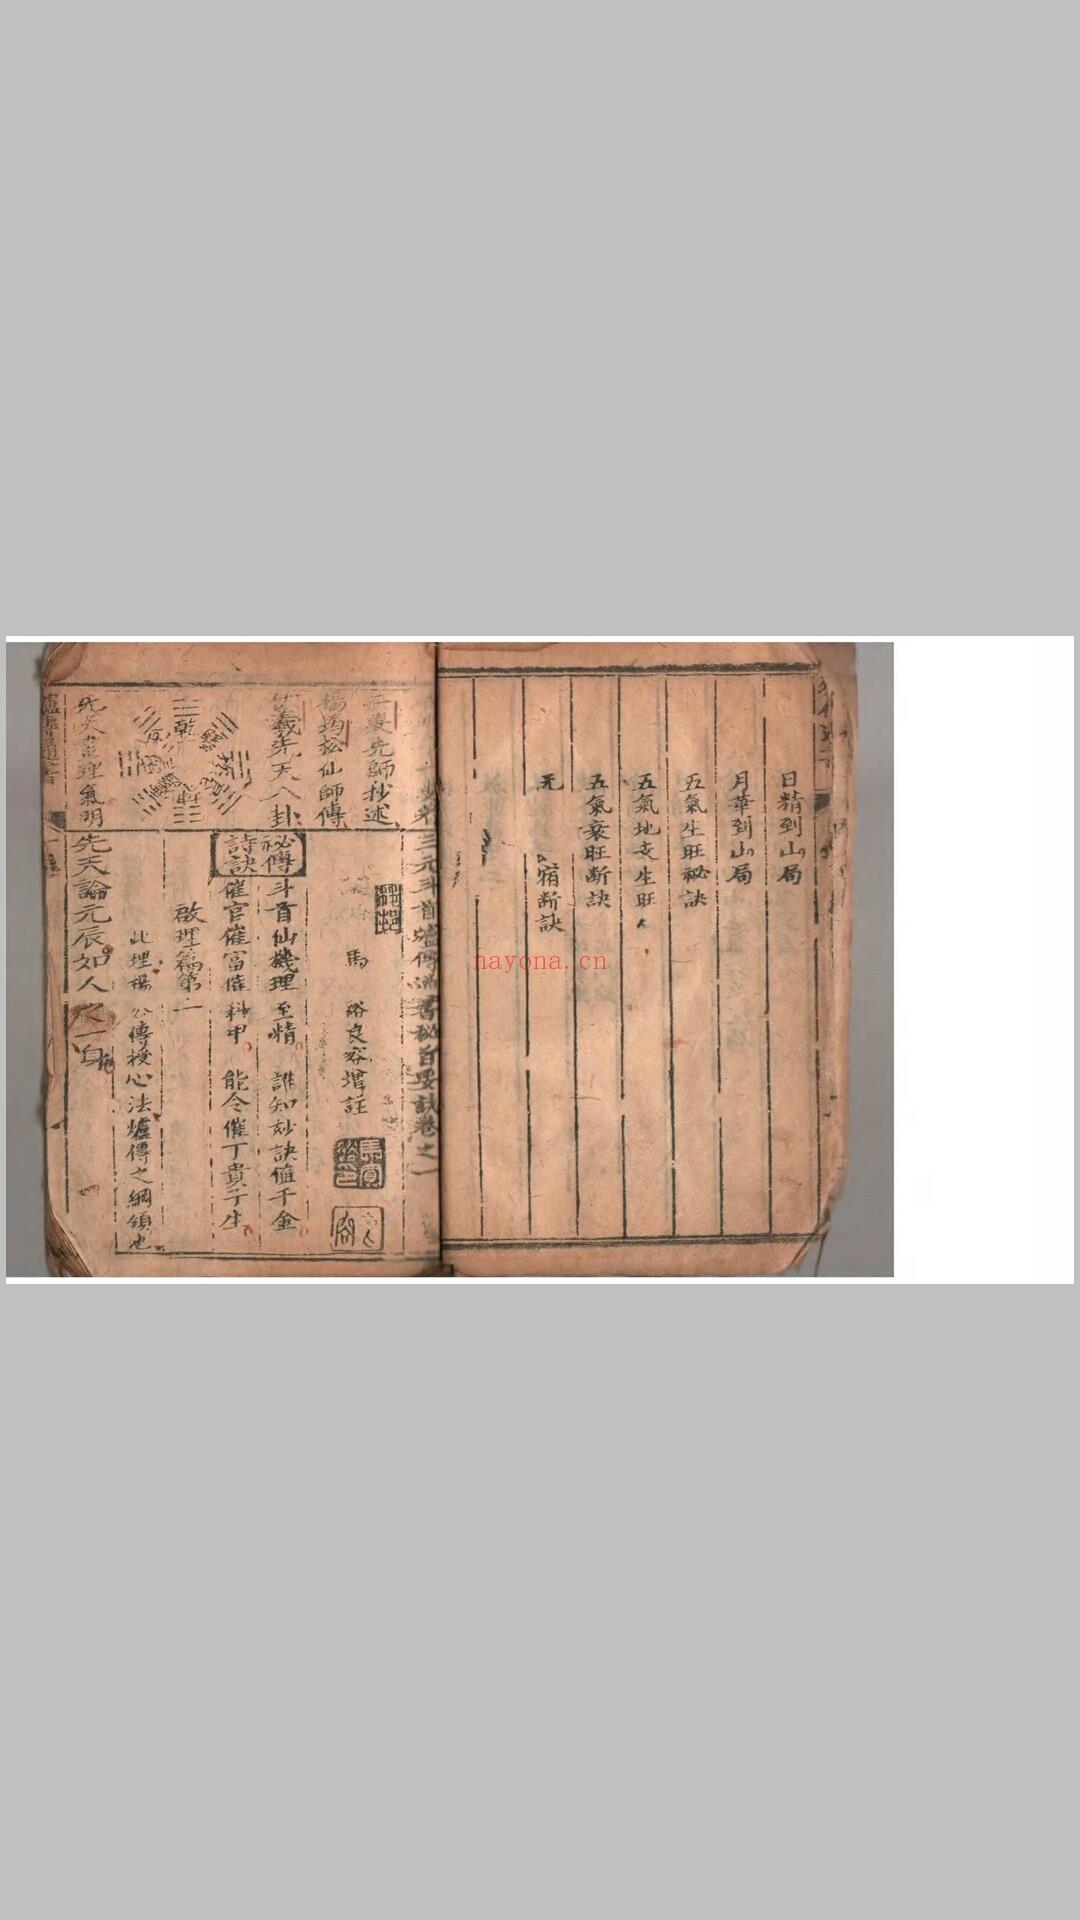 日精到山局
月華到山局
五氣生旺秘訣
五氣地支生旺
五氣衰旺断訣
宿断訣
nayona.cn
先師抄述
楊筠松仙師傳
伏羲先天八卦
乾
三元斗首
秘百要訣卷之一
馬
裕良容增註
秘傳
詩訣
斗首仙機理至精
誰知妙訣值千金
催官催富催科甲
能令催丁貴子生
啟理篇第一
此理楊公傳授心法爐傳之綱領也
先天畫理氣明
先天論元辰如人之一身